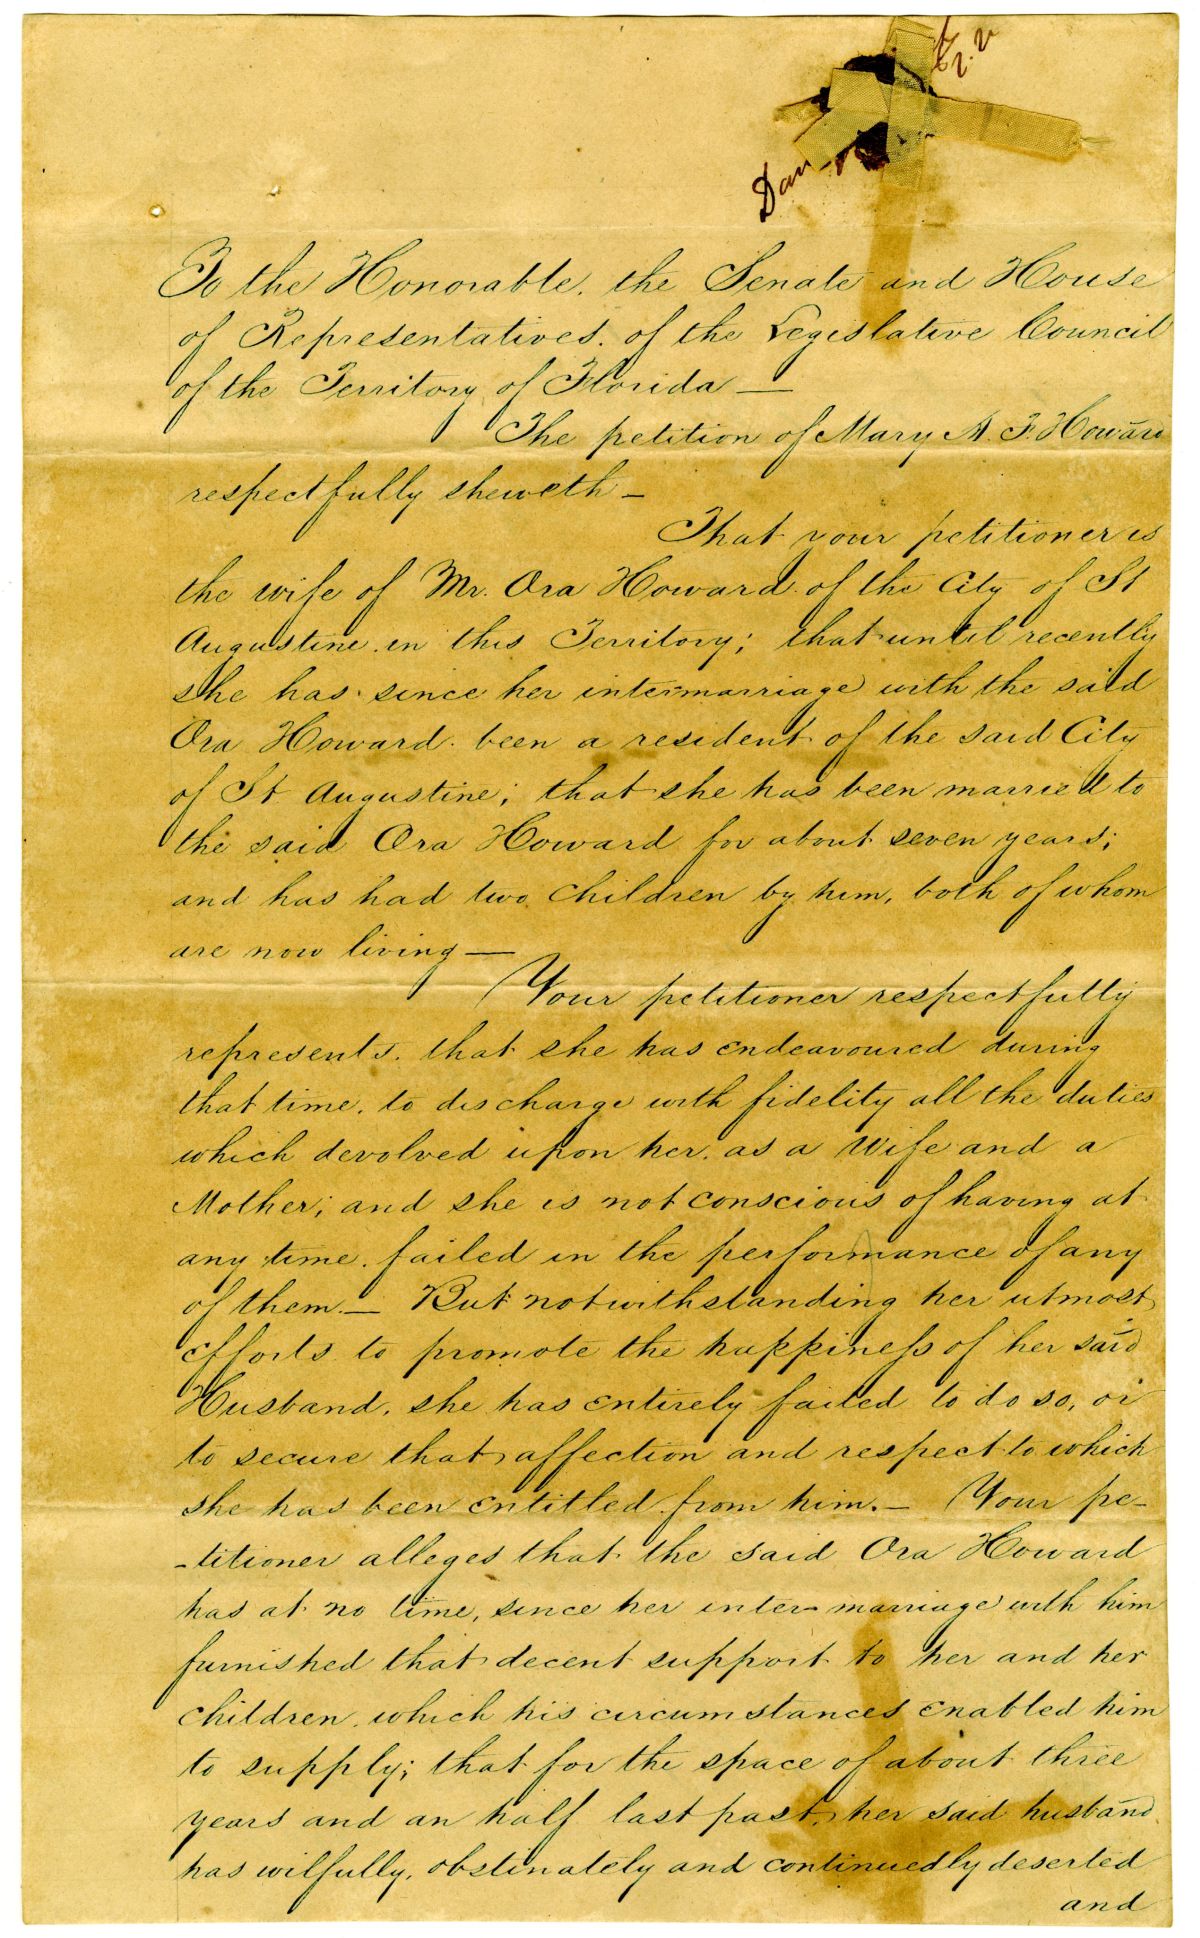 Dan
To the Honorable, the Senate and House
of Representatives. of the Legislative Council
of the Territory of Florida —
The petition of Mary A. F. Howard
respectfully sheweth —
That your petitioner is
the wife of Mr. Ora Howard of the City of St
Augustine in this Territory; that until recently
she has since her intermarriage with the said
Ora Howard been a resident of the said City
of St Augustine; that she has been married to
the said Ora Howard for about seven years;
and has had two children by him, both of whom
are now living —
Your petitioner respectfully
represents. that she has endeavoured during
that time, to discharge with fidelity all the duties
which devolved upon her, as a Wife and a
Mother; and she is not conscious of having at
any time failed in the performance of any
of them. — But notwithstanding her utmost
efforts to promote the happiness of her said
Husband, she has entirely failed to do so, or
to secure that affection and respect to which
she has been entitled from him. — Your pe-
-titioner alleges that the said Ora Howard
has at no time, since her inter-marriage with him
furnished that decent support to her and her
children, which his circumstances enabled him
to supply; that for the space of about three
years and an half last past, her said husband
has wilfully, obstinately and continuedly deserted
and